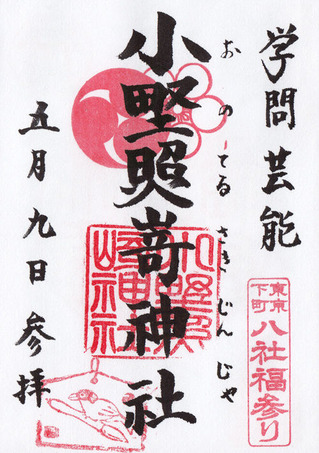 学問芸能
おのてるさきじんじゃ
小野照嵜神社
五月九日参拝
東京
下町
八社福参り
小野照
崎神社